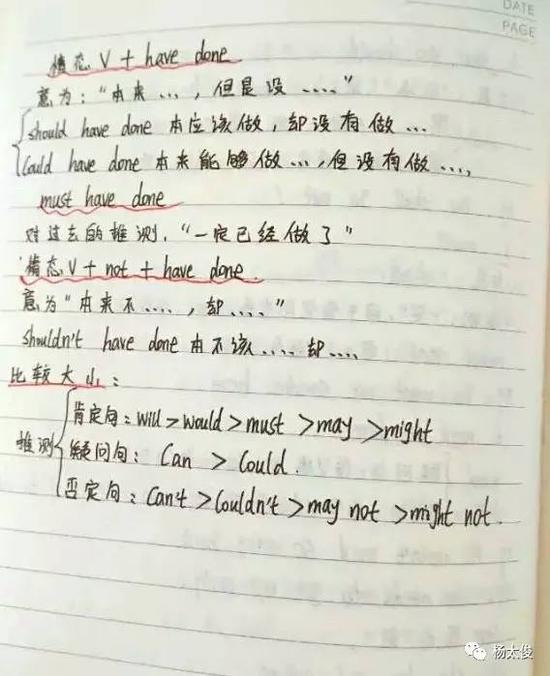 DATE
PAGE
情态 V + have done
意为："本来...,但是没...."
should have done 本应该做,却没有做...
Could have done 本来能够做...,但没有做....
must have done
对过去的推测,"一定已经做了"
情态V + not + have done.
意为"本来不....,却...."
shouldn't have done 本不该....却....
比较大小：
推测
肯定句：will > would > must > may > might
疑问句：Can > Could.
否定句：Can't > Couldn't > may not > might not.
杨太俊